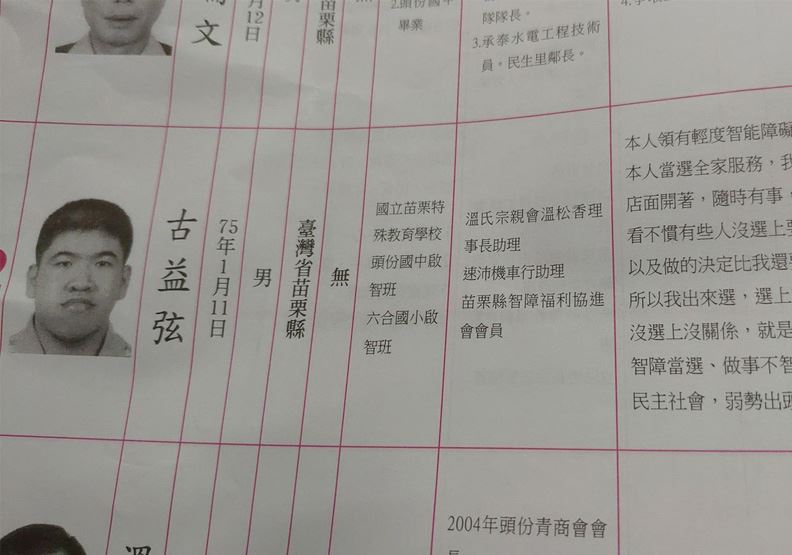 文
月12日
苗栗縣
2.頭份國中
畢業
隊隊長。
3.承泰水電工程技術
員。民生里鄰長。
古益弦
75年1月11日
男
臺灣省苗栗縣
無
國立苗栗特
殊教育學校
頭份國中啟
智班
六合國小啟
智班
溫氏宗親會溫松香理
事長助理
速沛機車行助理
苗栗縣智障福利協進
會會員
本人領有輕度智能障礙
本人當選全家服務，我
店面開著，隨時有事，
看不慣有些人沒選上要
以及做的決定比我還
所以我出來選，選上
沒選上沒關係，就是
智障當選、做事不智
民主社會，弱勢出頭
2004年頭份青商會會